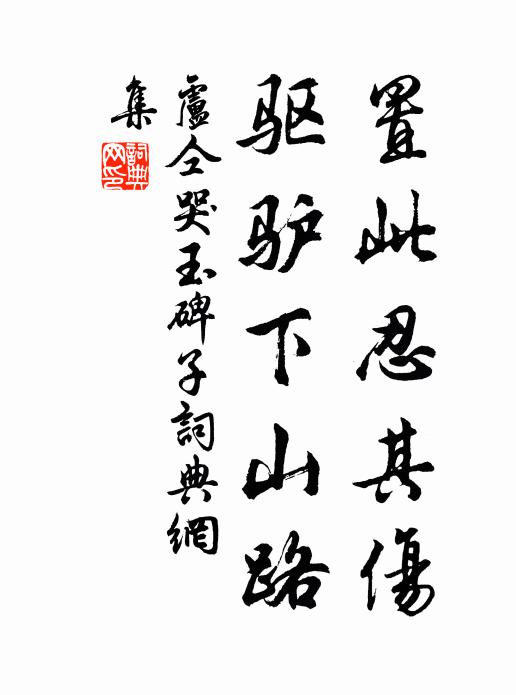 置此忍其傷
驱驴下山路
盧仝哭玉碑子詞典網
集
詞典
网印